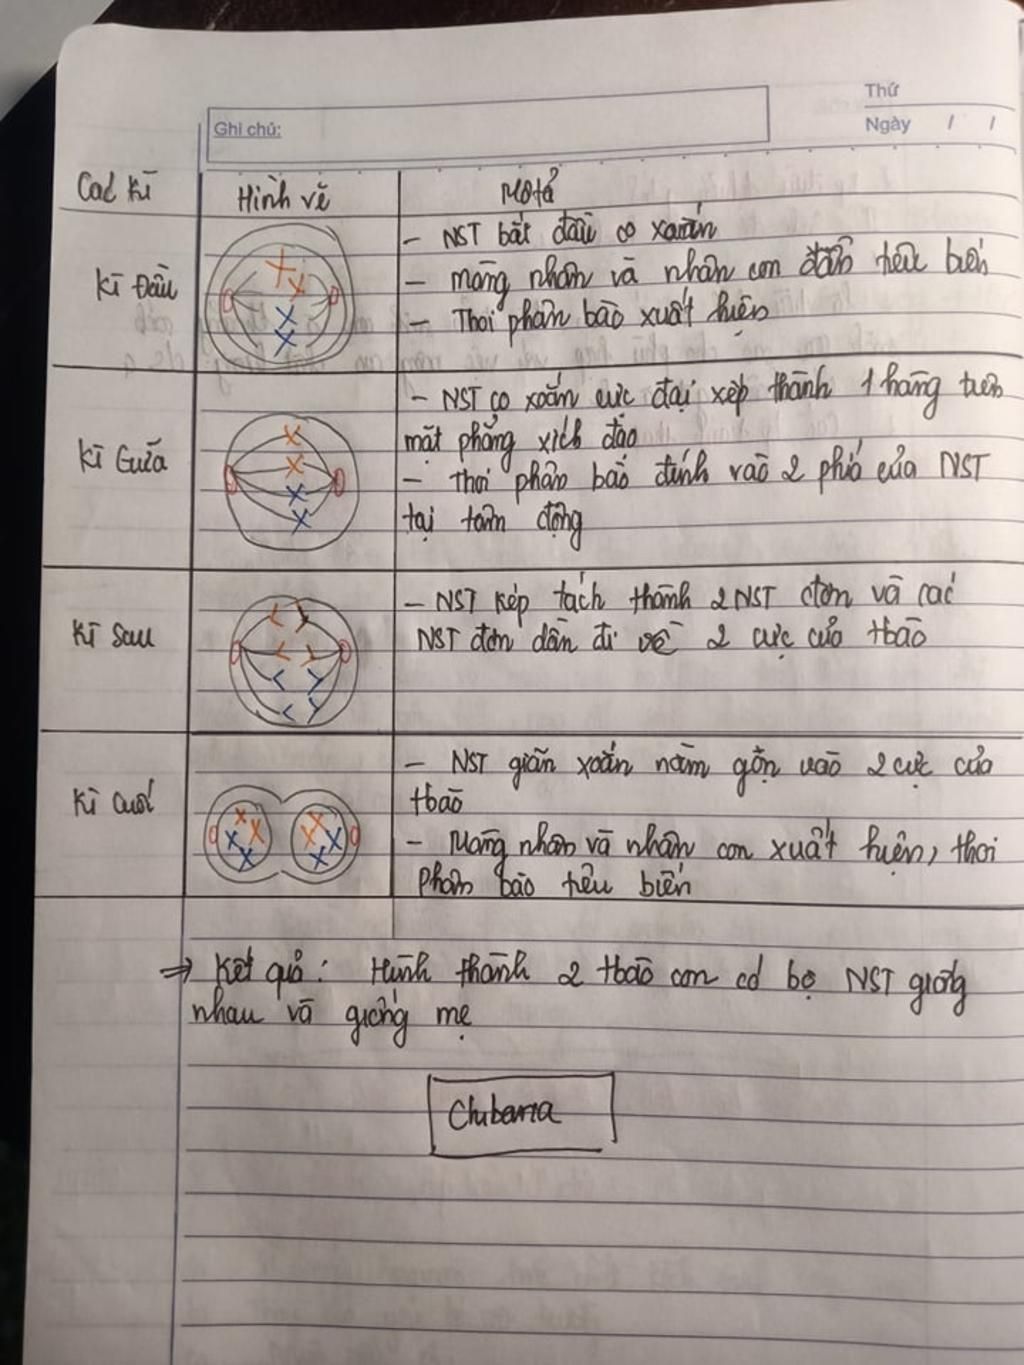 Thứ
Ghi chú:
Ngày / /
Các kì
Hình vẽ
Mô tả
Kì Đầu
- NST bắt đầu co xoắn
- màng nhân và nhân con dần tiêu biến
- Thoi phân bào xuất hiện
Kì Giữa
- NST co xoắn cực đại xếp thành 1 hàng trên
mặt phẳng xích đạo
- thoi phân bào đính vào 2 phía của NST
tại tâm động
Kì Sau
- NST kép tách thành 2 NST đơn và các
NST đơn dần đi về 2 cực của tbào
Kì Cuối
- NST giãn xoắn nằm gọn vào 2 cực của
tbào
- Màng nhân và nhân con xuất hiện, thoi
phân bào tiêu biến
⇒ Kết quả: Hình thành 2 tbào con có bộ NST giống
nhau và giống mẹ